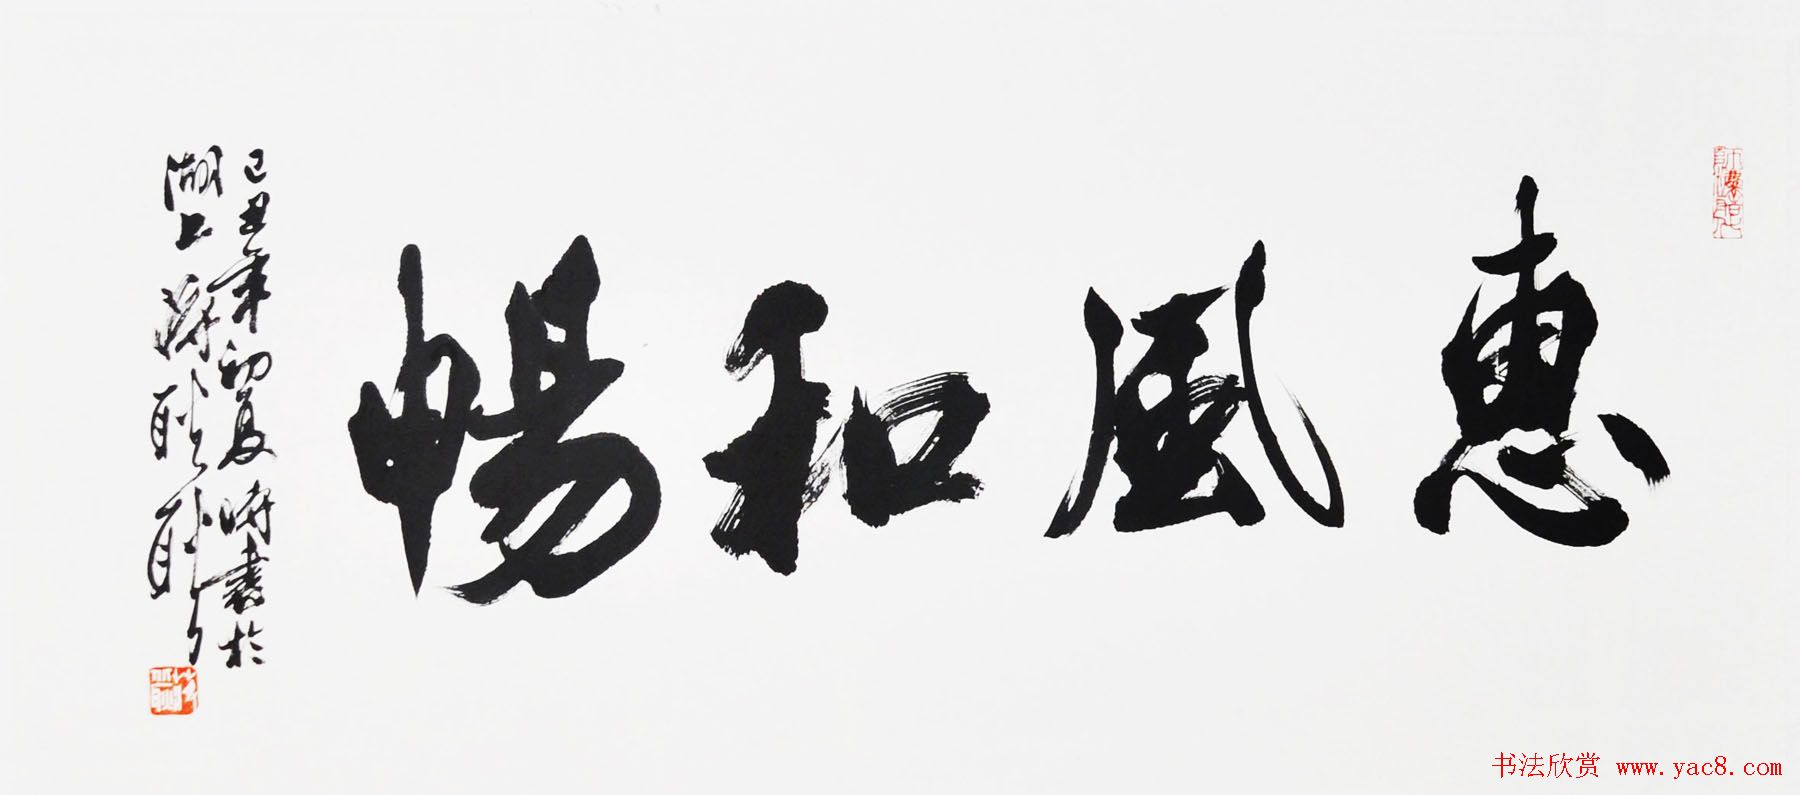 惠風和暢
己丑年初夏時書於
湖上蔣耿耿
书法欣赏 www.yac8.com